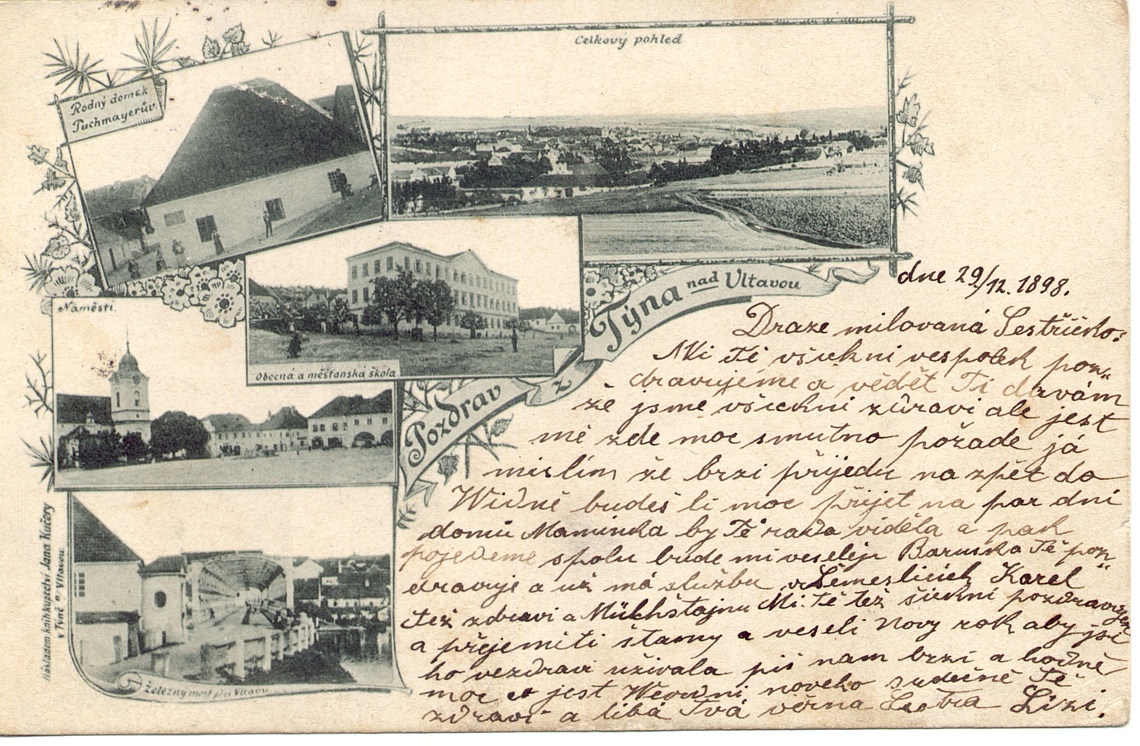 Celkový pohled
Rodný domek
Puchmayerův.
Náměstí.
Obecná a měšťanská škola
Pozdrav z Týna nad Vltavou
Železný most přes Vltavu
Nákladem knihkupectví Jana Kučery
v Týně n. Vltavou.
dne 29/12. 1898.
Draze milovaná Sestřičko:
Mi Tě všichni vespolek poz„
dravujéme a vědět Ti dávám
že jsme všichni zdravi ale jest
mě zde moc smutno pořade já
mislím že brzi přijedu na zpět do
Widně budeš li moc přijet na par dni
domů Maminka by Tě rada viděla a pak
pojedeme spolu bude mi veseleji Baruska Tě poz„
dravuje a už má službu v Karel
též zdravi a Mi Tě též
a přejemiti šťasny a veseli Novy rok aby jsi
ho vezdravi uživala piš nam brzi a hodně
moc jest noveho srdečně Tě
zdravi a libá Tvá věrna Sestra Lizi.